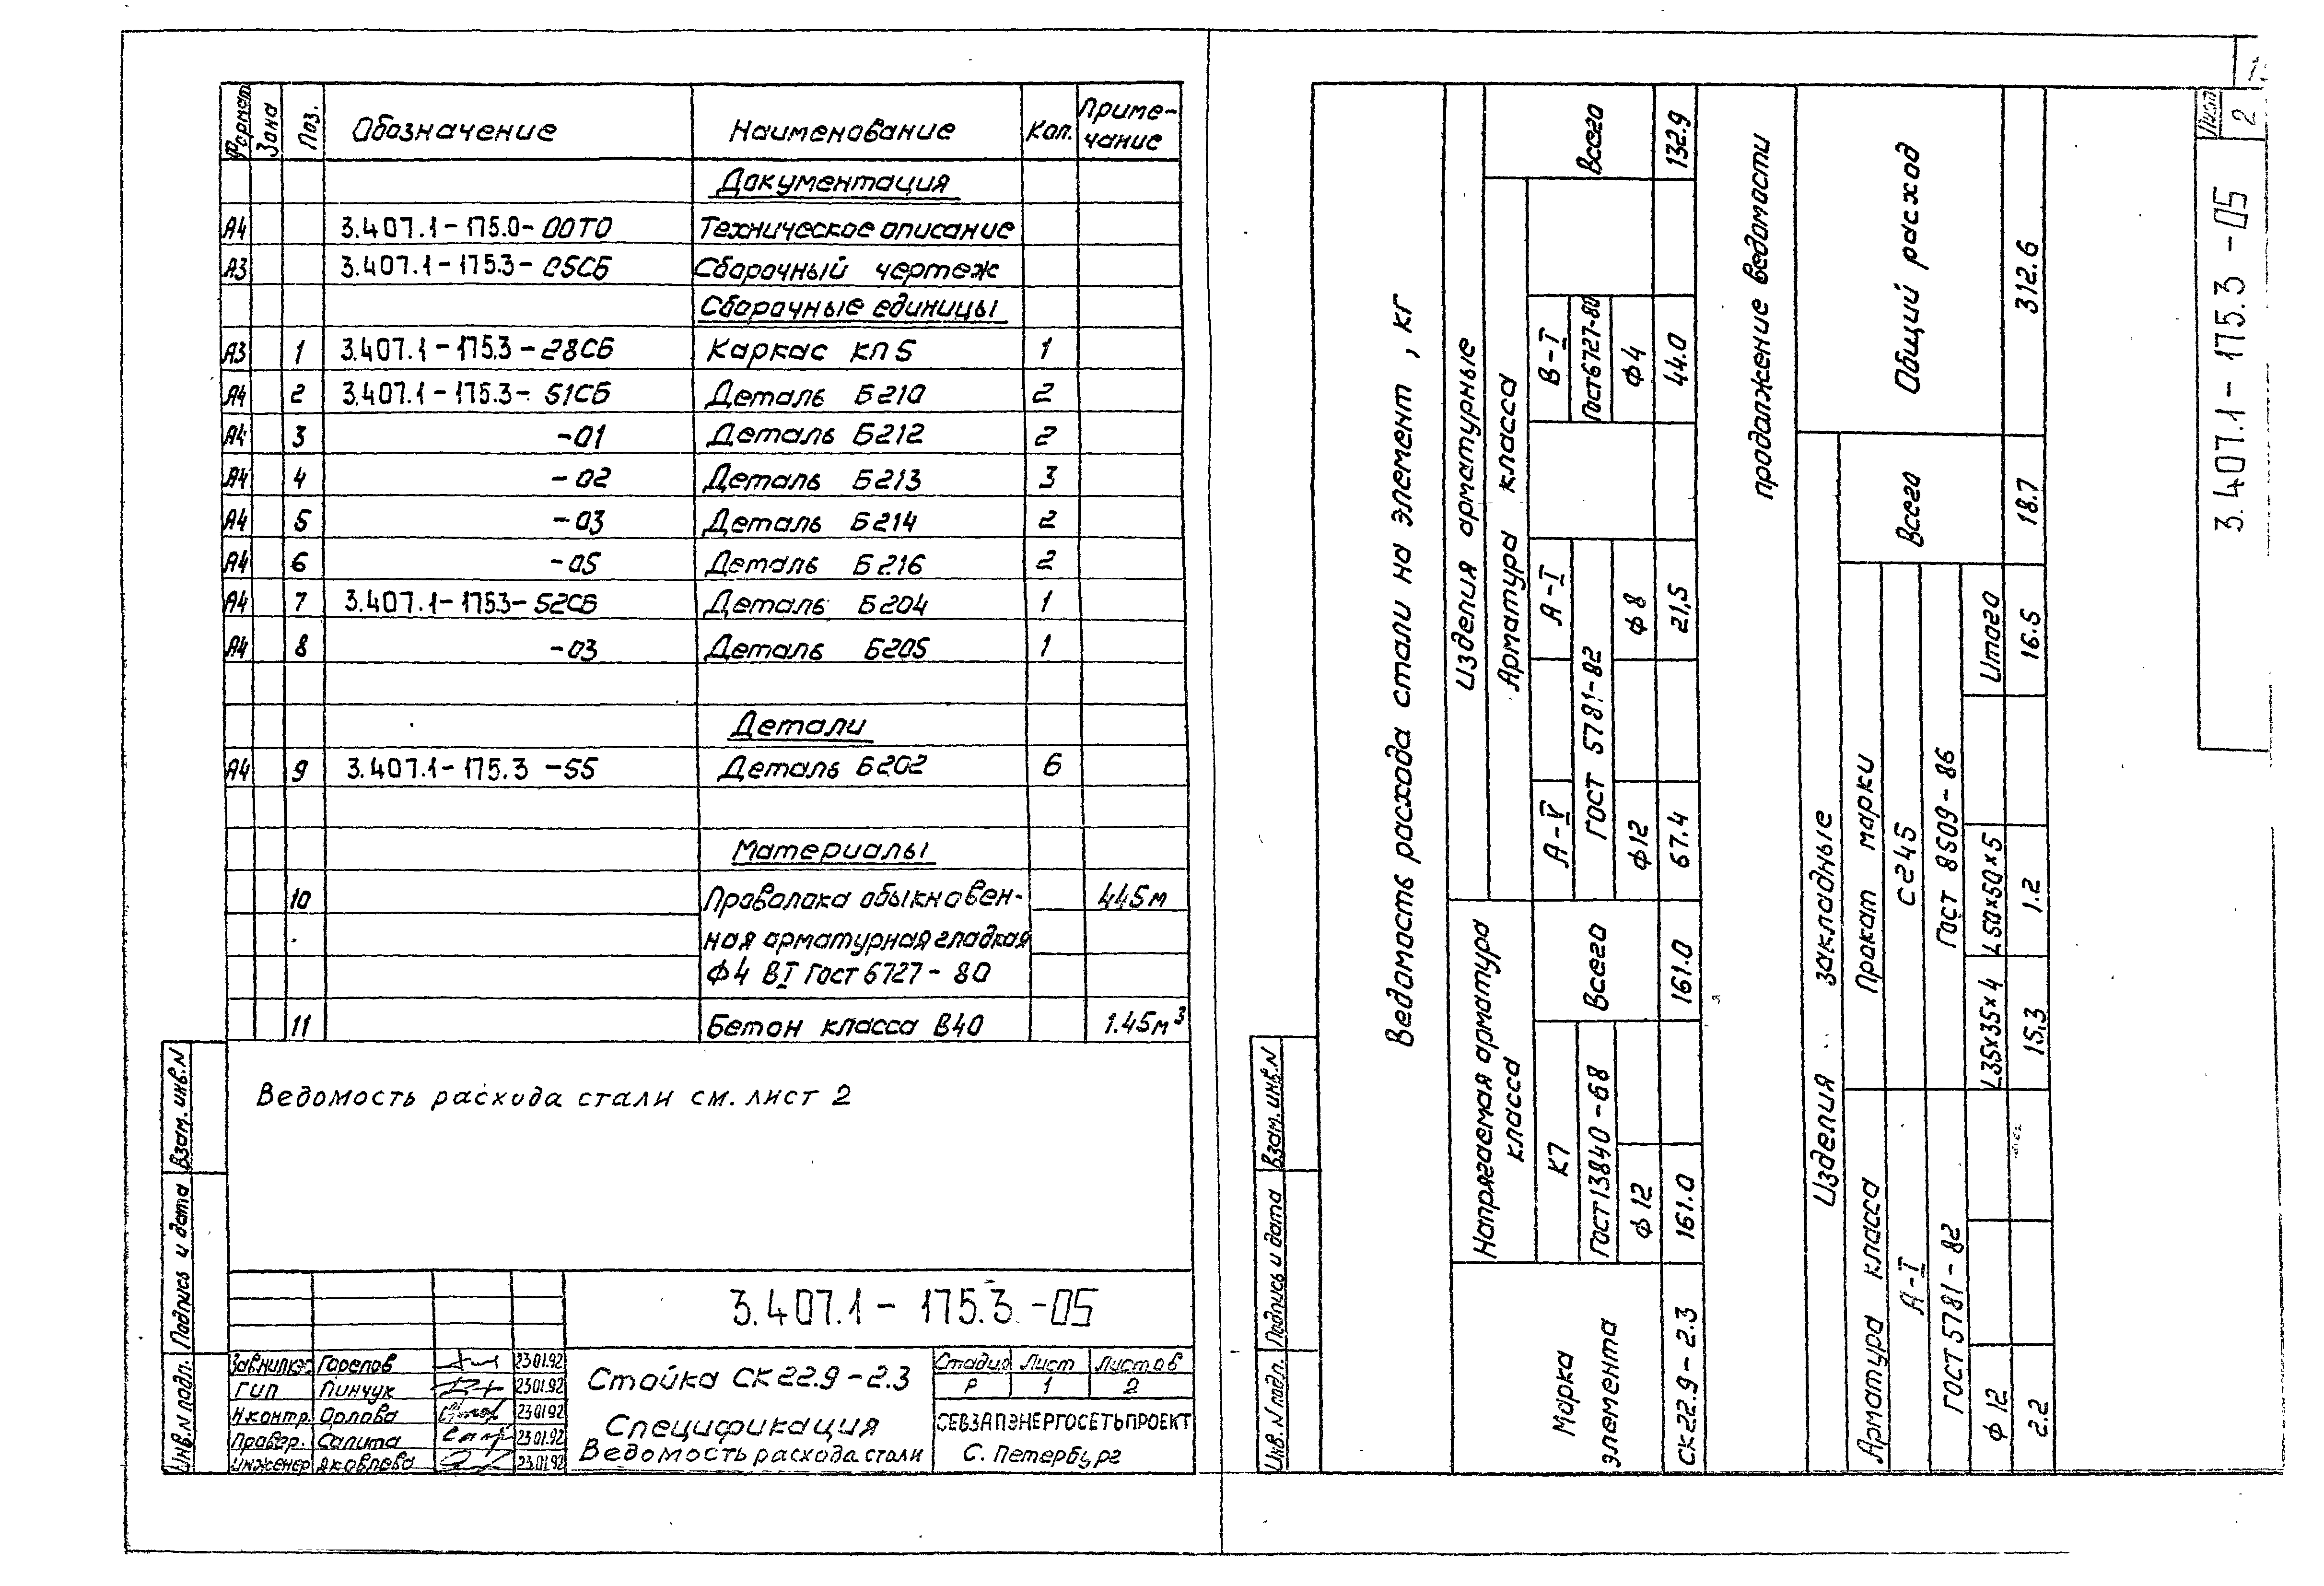 Формат Зона Поз. Обозначение Наименование Кол. Приме-
чание
Документация
А4 3.407.1-175.0-00ТО Техническое описание
А3 3.407.1-175.3-05СБ Сборочный чертеж
Сборочные единицы
А3 1 3.407.1-175.3-28СБ Каркас КП5 1
А4 2 3.407.1-175.3-51СБ Деталь Б210 2
А4 3 -01 Деталь Б212 2
А4 4 -02 Деталь Б213 3
А4 5 -03 Деталь Б214 2
А4 6 -05 Деталь Б216 2
А4 7 3.407.1-175.3-52СБ Деталь Б204 1
А4 8 -03 Деталь Б205 1
Детали
А4 9 3.407.1-175.3-55 Деталь Б202 6
Материалы
10 Проволока обыкновен- 445м
ная арматурная гладкая
ф4 ВI Гост 6727-80
11 Бетон класса В40 1.45м³
Ведомость расхода стали см. лист 2
Взам. инв. N
Подпись и дата
Инв. N подл.
3.407.1-175.3-05
Завнилкэс Горелов 23.01.92
ГИП Пинчук 23.01.92
Н.контр. Орлова 23.01.92
Провер. Салита 23.01.92
Инженер Яковлева 23.01.92
Стойка СК22.9-2.3
Спецификация
Ведомость расхода стали
Стадия Лист Листов
Р 1 2
СЕВЗАПЭНЕРГОСЕТЬПРОЕКТ
С. Петербург
Ведомость расхода стали на элемент, кг
Марка
элемента
Напрягаемая арматура
класса
Изделия арматурные
Арматура класса
Всего
К7
Всего
А-V
А-I
В-I
Гост 13840-68
ГОСТ 5781-82
Гост 6727-80
ф12
ф12
ф8
ф4
СК22.9-2.3 161.0 161.0 67.4 21,5 44.0 132.9
продолжение ведомости
Изделия закладные
Общий расход
Арматура класса
Прокат марки
Всего
А-I
С245
ГОСТ 5781-82
Гост 8509-86
ф12 L35х35х4 L50х50х5 Итого
2.2 15.3 1.2 16.5 18.7 312.6
Взам. инв. N
Подпись и дата
Инв. N подл.
3.407.1-175.3-05
Лист
2